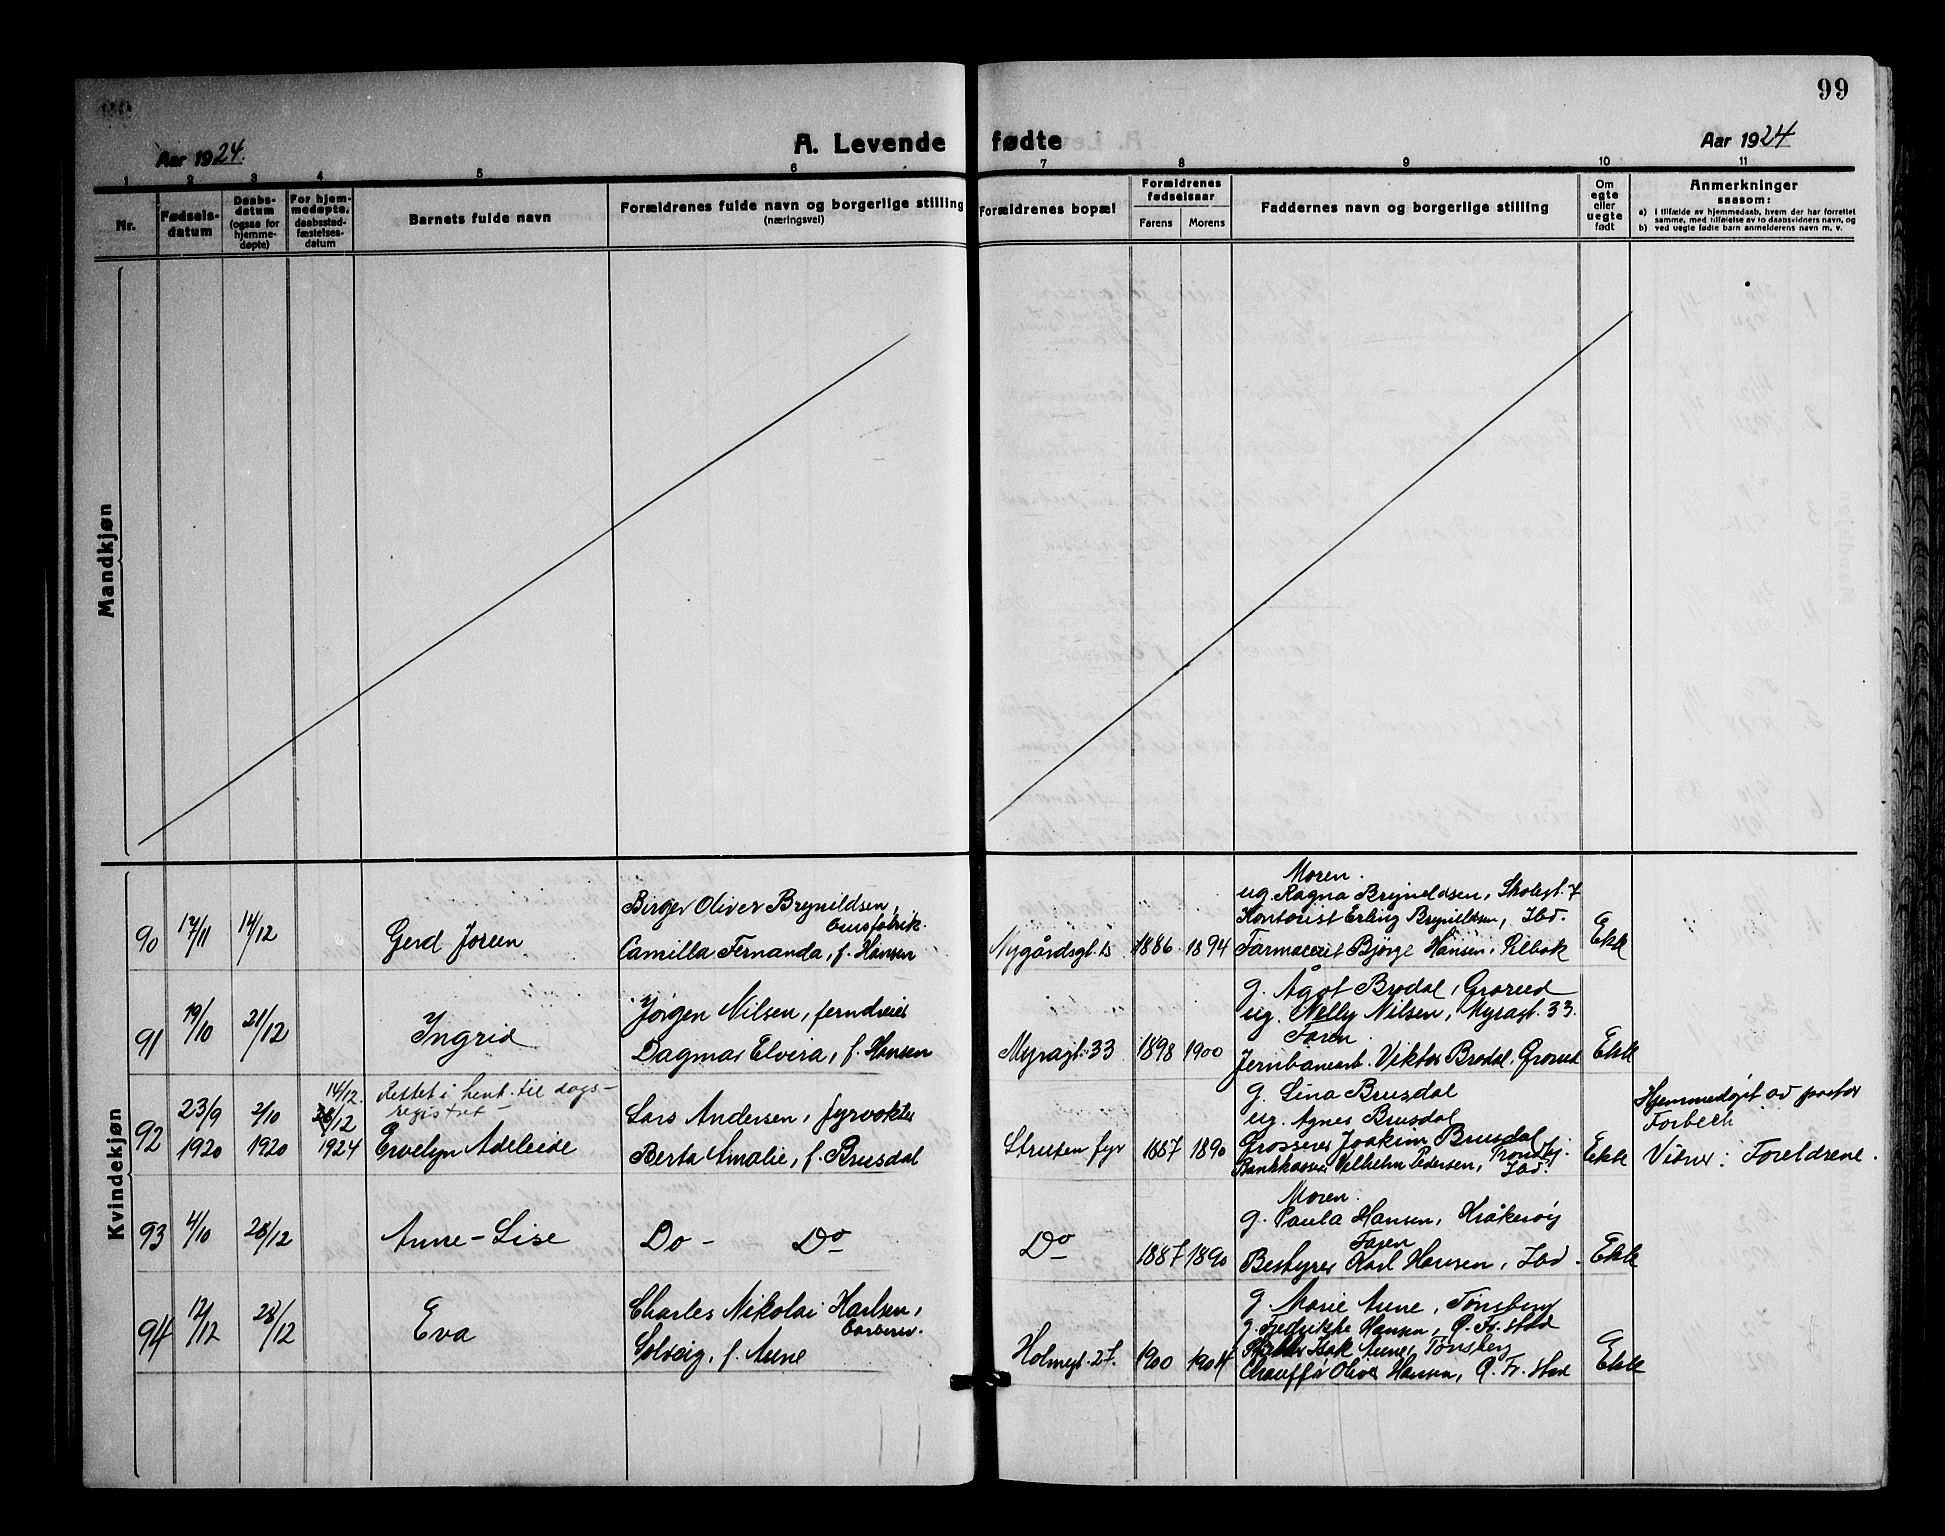 99
Aar 1924.
A. Levende fødte
Aar 1924
1 2 3 4 5 6 7 8 9 10 11
Nr.
Fødselsdatum
Daabsdatum (ogsaa for hjemmedøpte)
For hjemmedøpte, daabsstadfæstelsesdatum
Barnets fulde navn
Forældrenes fulde navn og borgerlige stilling
(næringsvei)
Forældrenes bopæl
Forældrenes fødselsaar
Farens Morens
Faddernes navn og borgerlige stilling
Om egte eller uegte født
Anmerkninger
saasom:
a) i tilfælde av hjemmedaab, hvem der har forrettet
samme, med tilføielse av to daabsvidners navn, og
b) ved uegte fødte barn anmelderens navn m. v.
Mandkjøn
Kvindekjøn
90 17/11 14/12
Gerd Joren
Birger Oliver Brynildsen,
Camilla Fernanda, f. Hansen
Nygårdsgt. 1886 1894
Moren.
ug. Ragna Brynildsen, Skolegt. 7
Kontorist Erling Brynildsen, Ibd.
Farmaceut Bjørge Hansen,
Ekte
91 19/10 21/12
Ingrid
Jørgen Nilsen,
Dagmar Elvira, f. Hansen
Myragt. 33 1898 1900
g. Ågot Brodal, Grorud
ug. Nelly Nilsen, Myragt. 33.
Faren
Jernbanearb. Viktor Brodal, Grorud
Ekte
92 23/9 1920 2/10 1920
14/12.
28/12
1924
Rettet i hent. til dags-
registret -
Evelyn Adeleide
Lars Andersen, fyrvokter
Berta Amalie, f. Brusdal
Struten fyr 1887 1890
g. Lina Brusdal
ug. Agnes Brusdal
Grosserer Joakim Brusdal
Bankkasserer Vilhelm Pedersen, Trondhj.
Ibd.
Ekte
Hjemmedøpt av pastor
Forbech
Vidner: Foreldrene.
93 4/10 28/12
Anne-Lise
Do - Do
Do 1887 1890
Moren.
g. Paula Hansen, Kråkerøy
Faren
Bestyrer Karl Hansen, Ibd.
Ekte
94 12/12 28/12
Eva
Charles Nikolai Karlsen,
Solveig, f. Aune
Holmegt. 27. 1900 1904
g. Marie Aune, Tønsberg
g. Fredrikke Hansen, G. Fr. stad
Isak Aune, Tønsberg
Chauffør Oliver Hansen, G. Fr. stad
Ekte